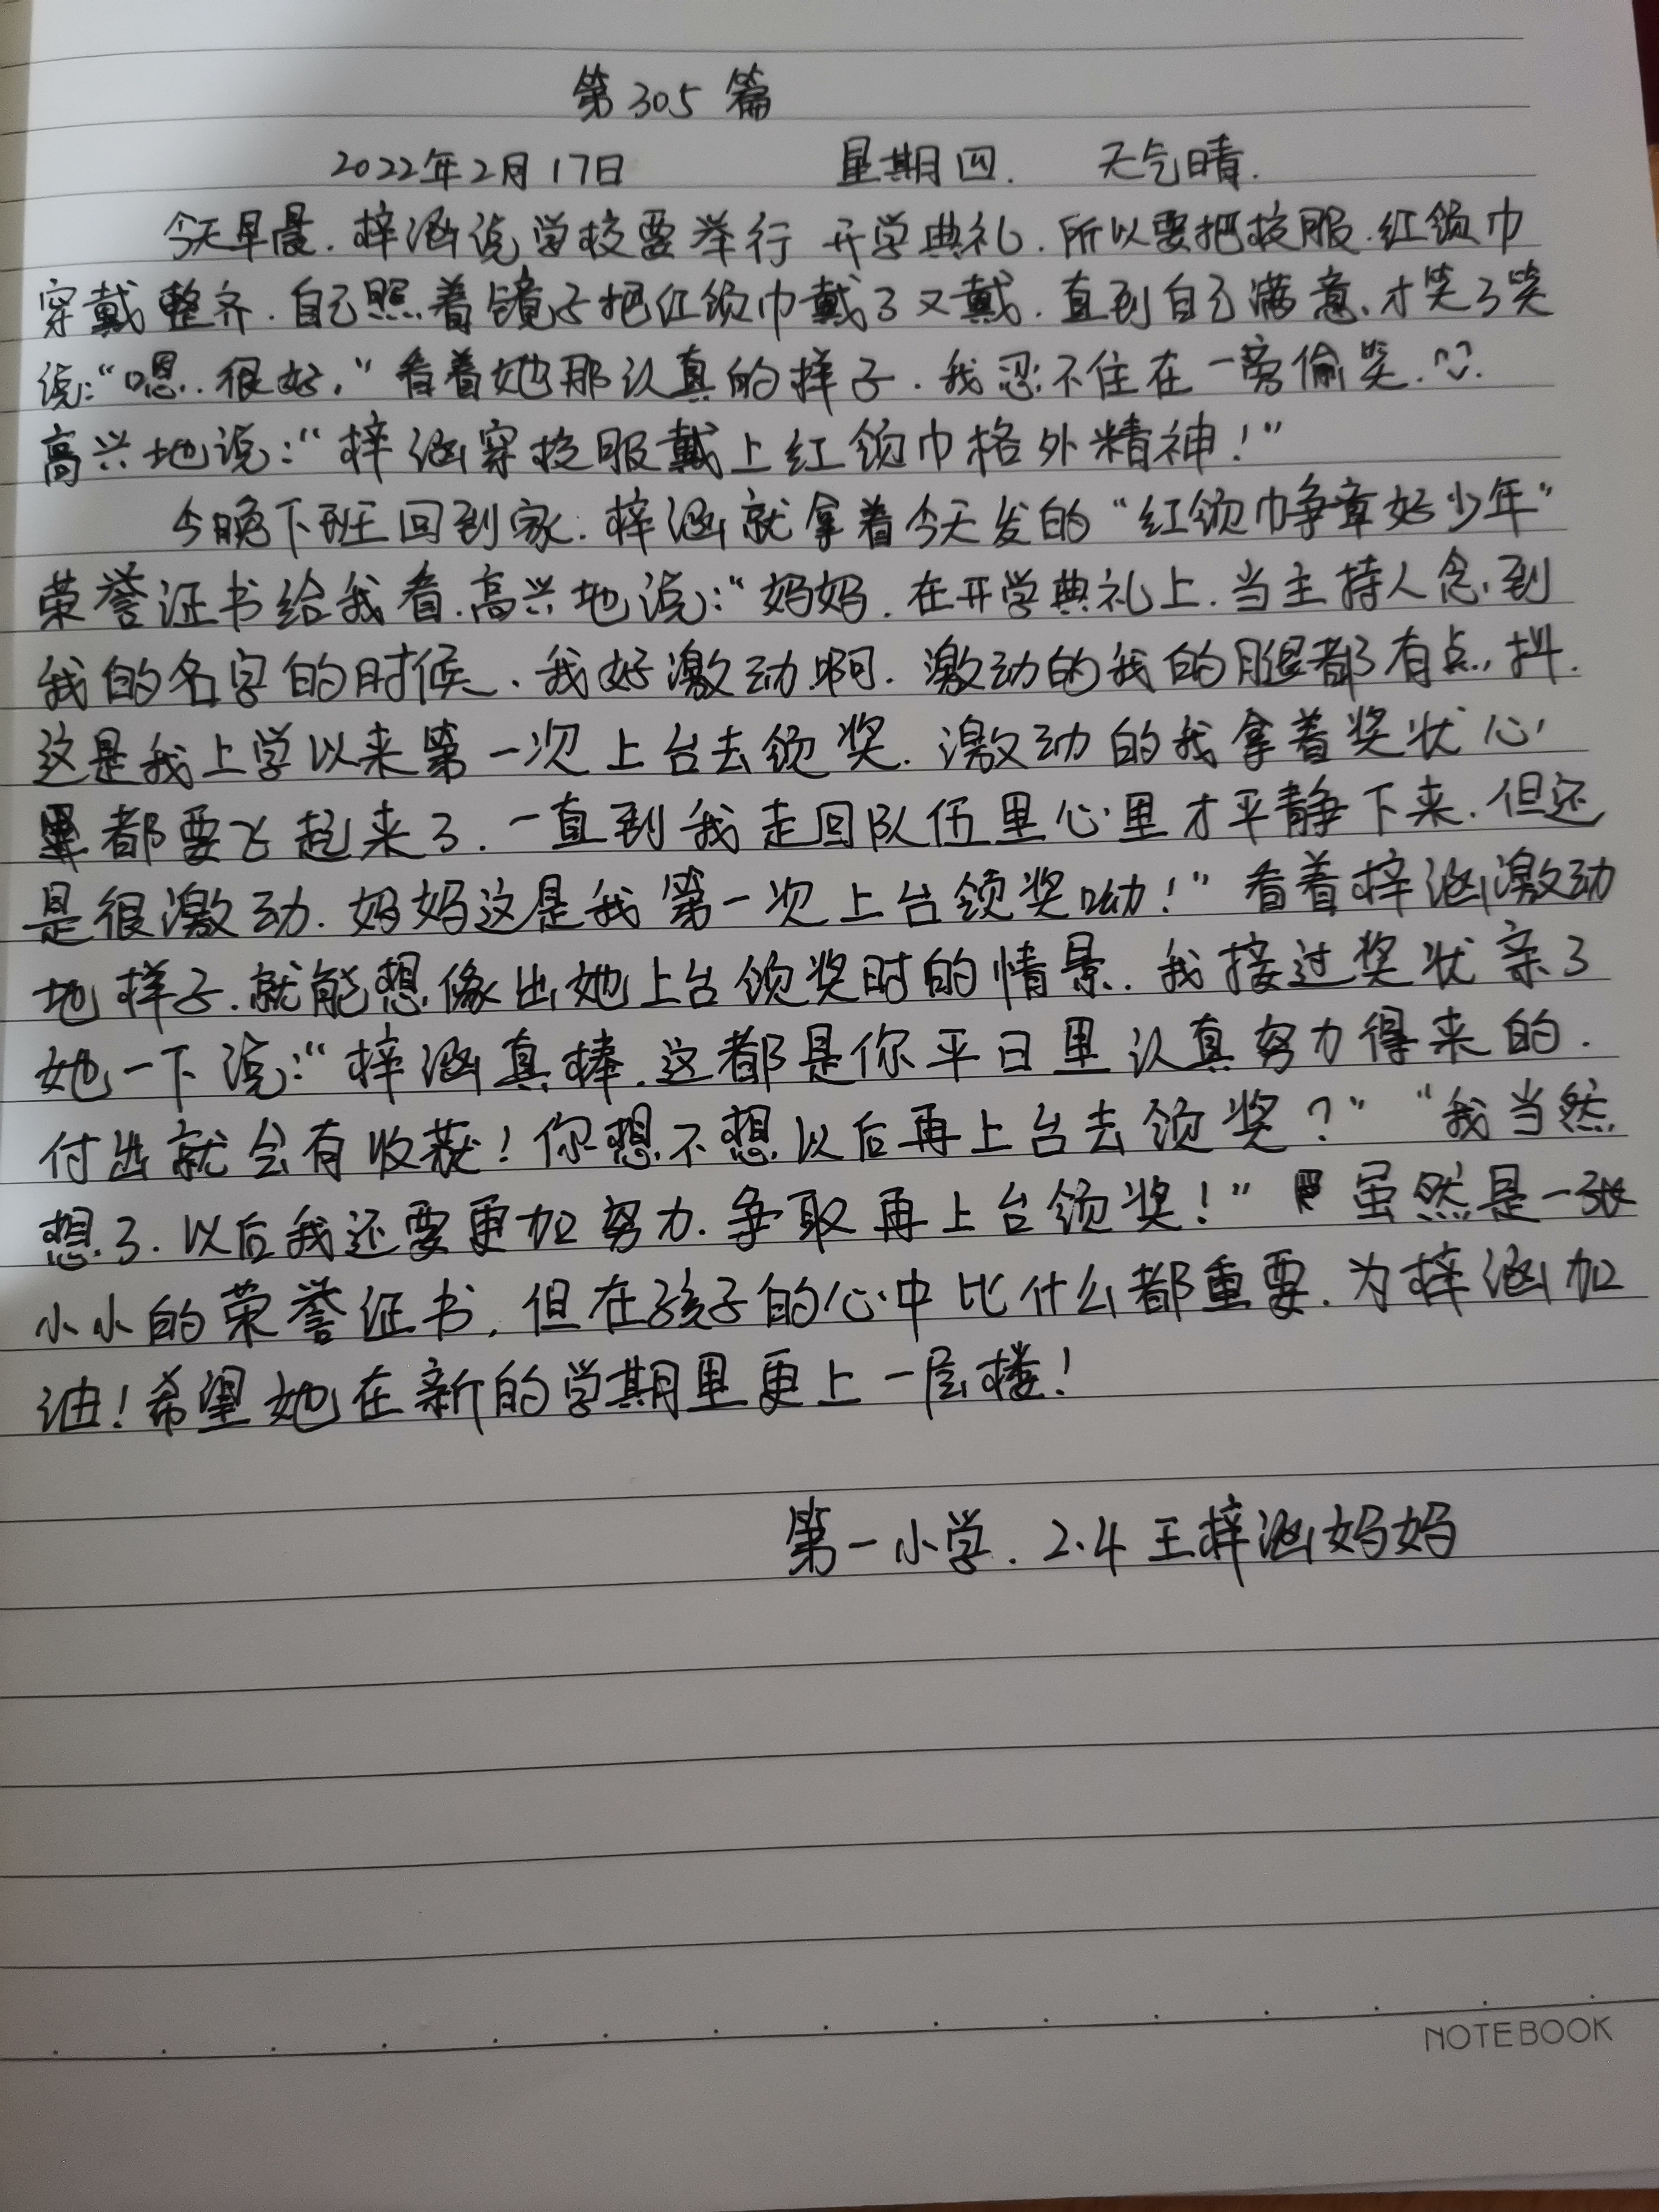 第305篇
2022年2月17日 星期四. 天气晴.
今天早晨.梓涵说学校要举行开学典礼.所以要把校服.红领巾
穿戴整齐.自己照着镜子把红领巾戴了又戴.直到自己满意.才笑了笑
说:“嗯..很好.”看着她那认真的样子.我忍不住在一旁偷笑.
高兴地说:“梓涵穿校服戴上红领巾格外精神!”
今晚下班回到家.梓涵就拿着今天发的“红领巾争章好少年”
荣誉证书给我看.高兴地说:“妈妈.在开学典礼上.当主持人念到
我的名字的时候.我好激动啊.激动的我的腿都有点抖.
这是我上学以来第一次上台去领奖.激动的我拿着奖状心
里都要飞起来了.一直到我走回队伍里心里才平静下来.但还
是很激动.妈妈这是我第一次上台领奖呦!”看着梓涵激动
地样子.就能想像出她上台领奖时的情景.我接过奖状亲了
她一下说:“梓涵真棒.这都是你平日里认真努力得来的.
付出就会有收获!你想不想以后再上台去领奖?”“我当然
想了.以后我还要更加努力.争取再上台领奖!”虽然是一张
小小的荣誉证书.但在孩子的心中比什么都重要.为梓涵加
油!希望她在新的学期里更上一层楼!
第一小学.2.4王梓涵妈妈
NOTEBOOK